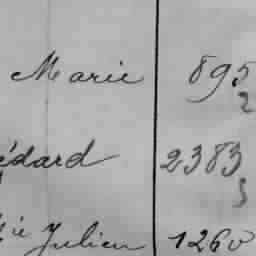 Marie 895
2
édard 2383
3
ie Julien 1260